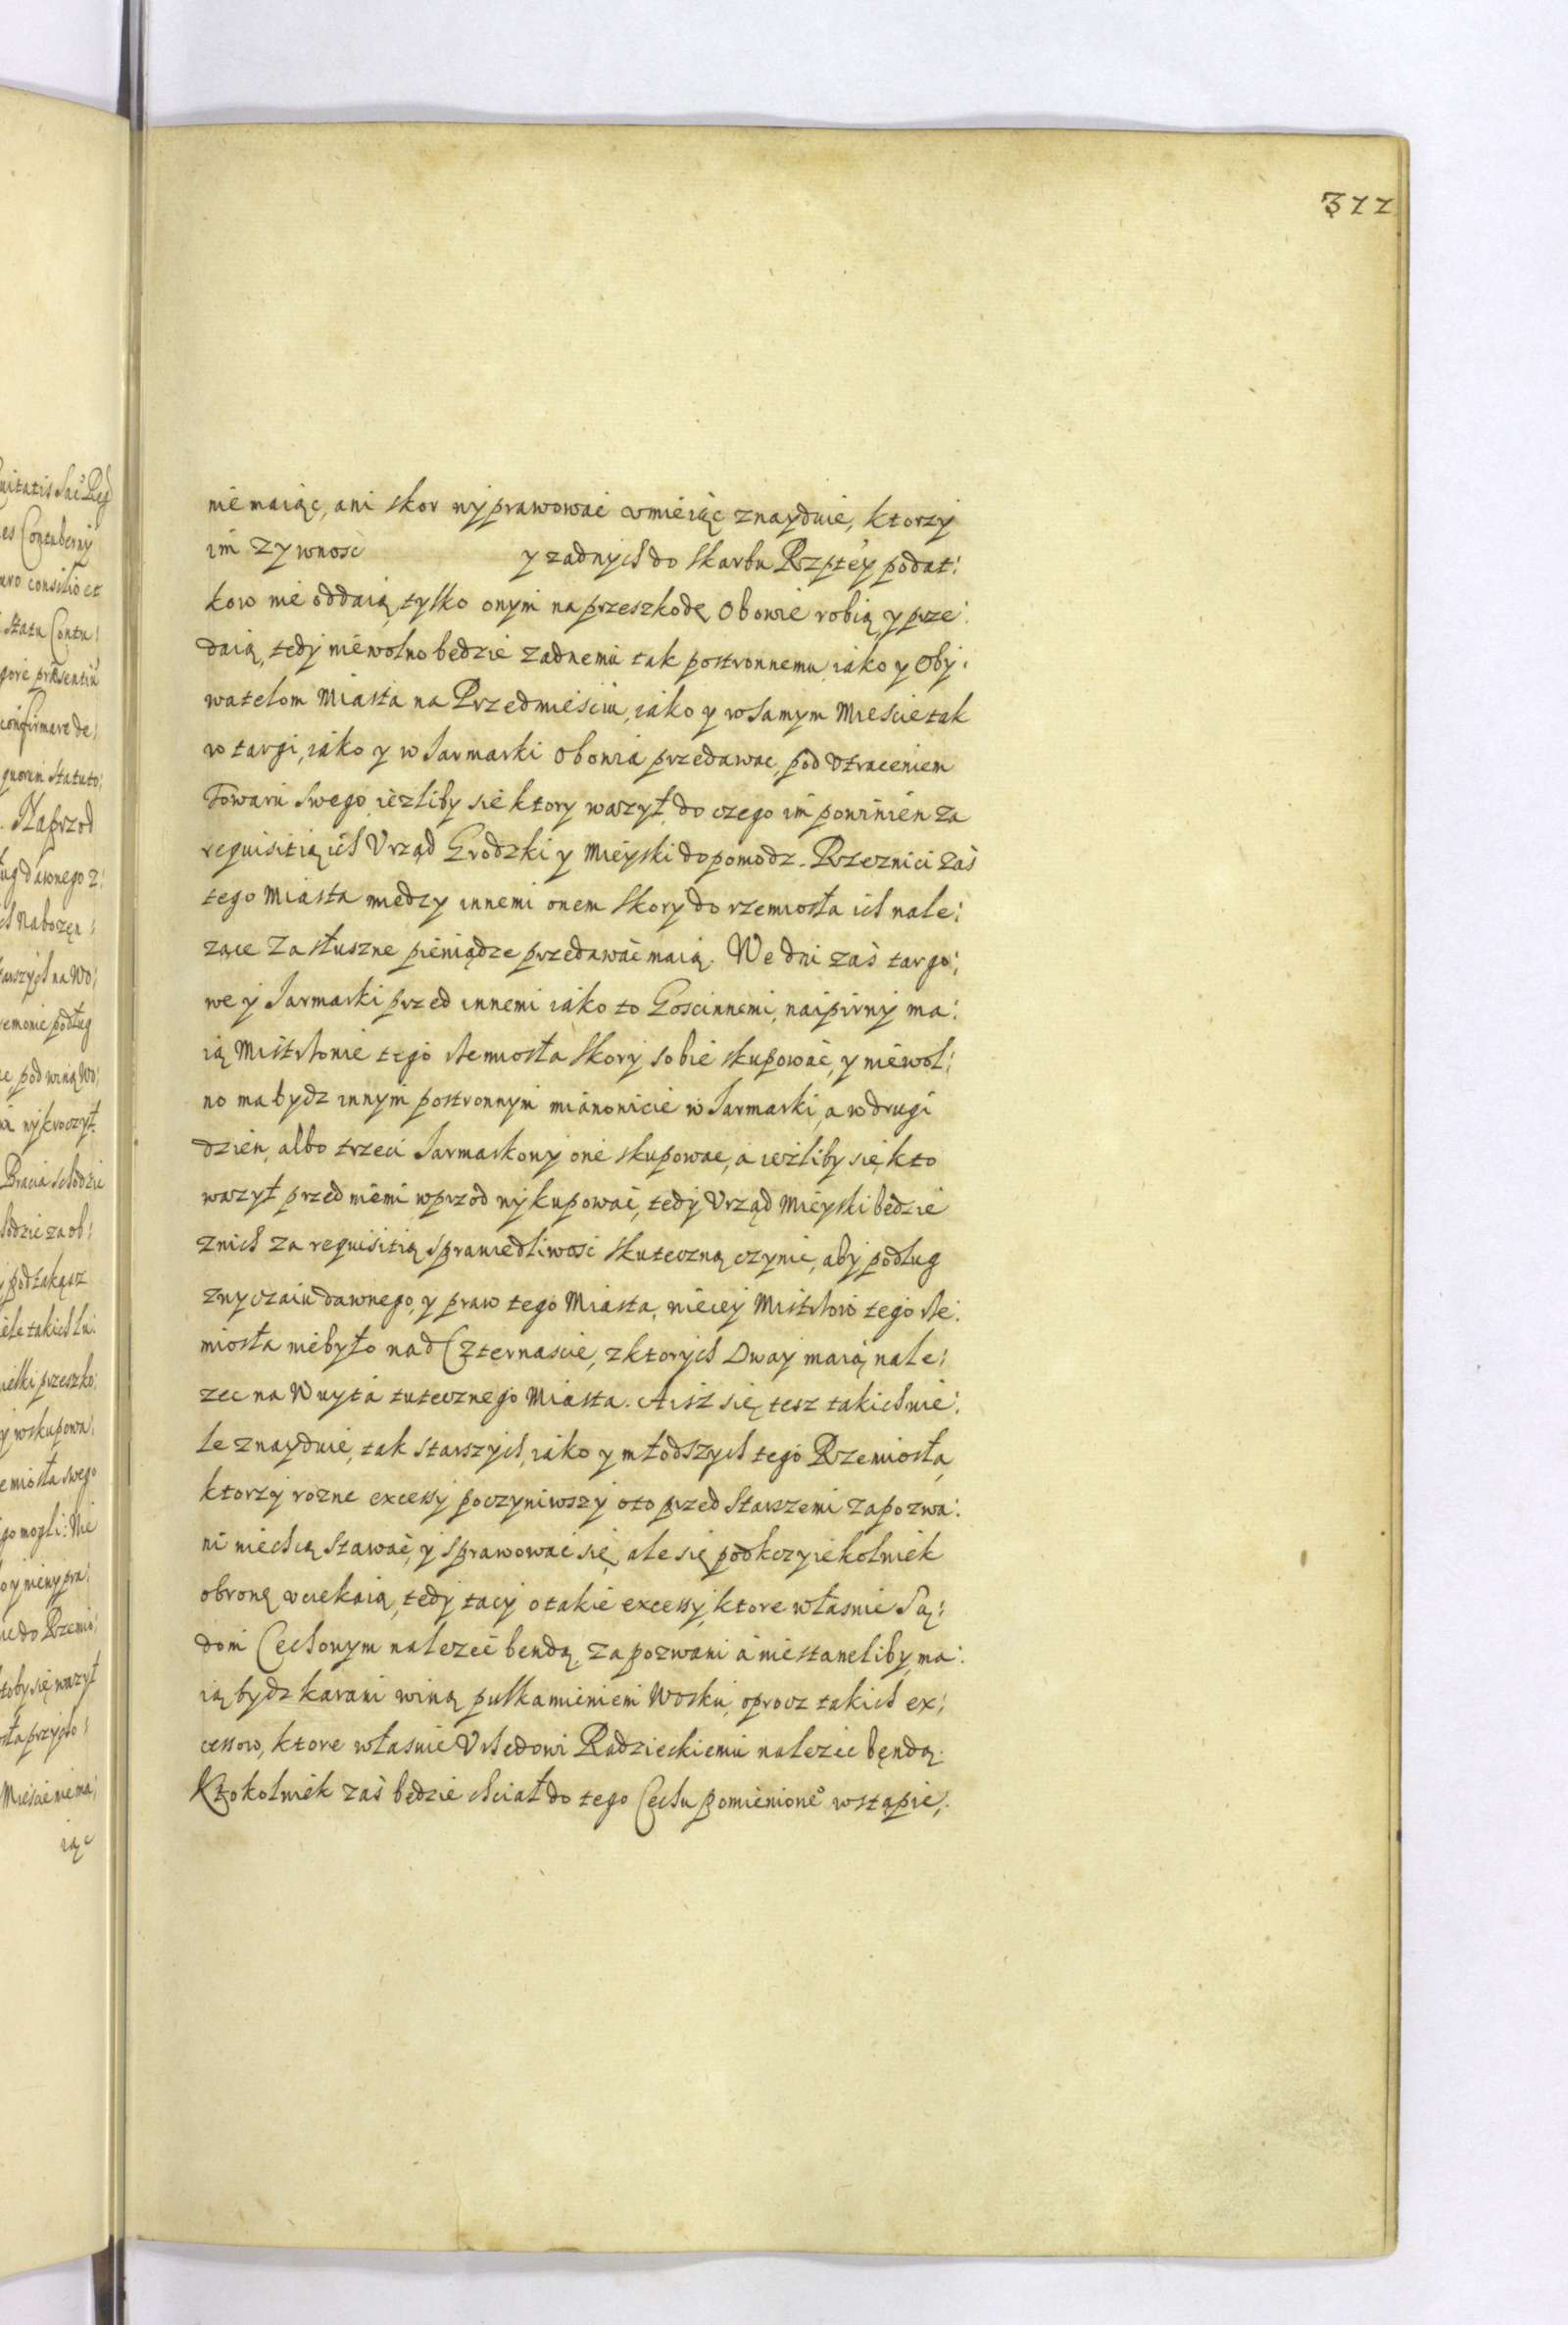 311
nie maiąc, ani skor wyprawować vmieiąc znayduie, ktorzy
im zywnosc y zadnych do skarbu Rzptey podat:
kow nie oddaią, tylko onym na przeszkodę Obowie robią y prze:
daią, tedy niewolno będzie zadnemu tak postronnemu iako y Oby:
watelom Miasta na Przedmiesciu, iako y w samym Miescie tak
w targi, iako y w Jarmarki Obowia przedawac, pod vtraceniem
Towaru swego, iezliby się ktory wazył, do czego im powinien za
requisitią ich Vrząd Grodzki y Mieyski dopomodz. Rzeznici zaś
tego Miasta miedzy innemi onem skory do rzemiosła ich nale:
zące za słuszne pieniądze przedawać maią. We dni zaś targo:
we y Jarmarki przed innemi iako to Goscinnemi, naipirwy ma:
ią Mistrzowie tego rzemiosła skory sobie skupować, y niewol:
no ma bydz innym postronnym mianowicie w Jarmarki, a w drugi
dzien, albo trzeci Jarmarkowy one skupowac, a iezliby się kto
wazył przed niemi wprzod wykupować, tedy Vrząd Mieyski będzie
z nich za requisitią sprawiedliwosc skuteczną czynic, aby podług
zwyczaiu dawnego, y praw tego Miasta, wiecey Mistrzow tego rze:
miosła niebyło nad Czternascie, z ktorych Dway maią nale:
zec na Wuyta tutecznego Miasta. A isz się tesz takich wie:
le znayduie, tak starszych, iako y młodszych tego Rzemiosła,
ktorzy rozne excessy poczyniwszy o to przed Starszemi zapozwa:
ni niechcą stawać, y sprawować się, ale się pod kczyiekolwiek
obronę vciekaią, tedy tacy o takie excessy, ktore własnie Są:
dom Cechowym nalezeć bendą, zapozwani a niestaneliby, ma:
ią bydz karani winą pułkamieniem Wosku, oprocz takich ex:
cessow, ktore własnie Vrzędowi Radzieckiemu nalezec będą.
Ktokolwiek zaś będzie chciał do tego Cechu pomienione° wstąpic,